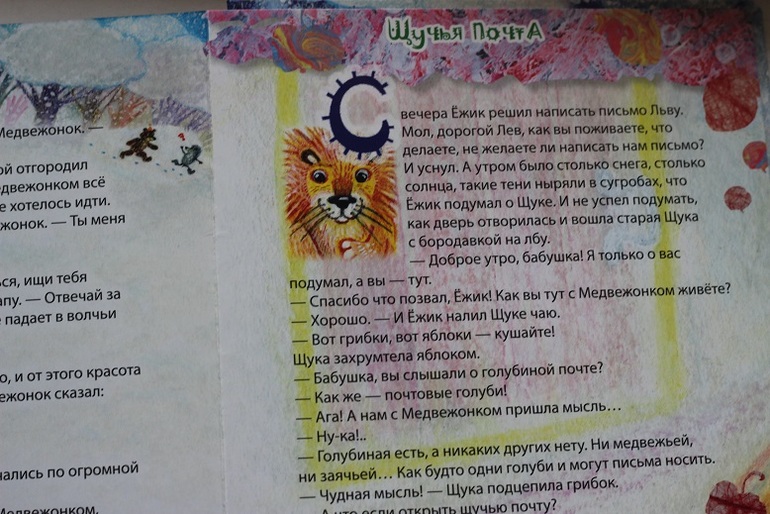 Медвежонок. —
ой отгородил
едвежонком всё
е хотелось идти.
жонок. — Ты меня
ься, ищи тебя
апу. — Отвечай за
падает в волчьи
о, и от этого красота
ежонок сказал:
чались по огромной
Медвежонком.
Щучья Почта
С вечера Ёжик решил написать письмо Льву.
Мол, дорогой Лев, как вы поживаете, что
делаете, не желаете ли написать нам письмо?
И уснул. А утром было столько снега, столько
солнца, такие тени ныряли в сугробах, что
Ёжик подумал о Щуке. И не успел подумать,
как дверь отворилась и вошла старая Щука
с бородавкой на лбу.
— Доброе утро, бабушка! Я только о вас
подумал, а вы — тут.
— Спасибо что позвал, Ёжик! Как вы тут с Медвежонком живёте?
— Хорошо. — И Ёжик налил Щуке чаю.
— Вот грибки, вот яблоки — кушайте!
Щука захрумтела яблоком.
— Бабушка, вы слышали о голубиной почте?
— Как же — почтовые голуби!
— Ага! А нам с Медвежонком пришла мысль...
— Ну-ка!..
— Голубиная есть, а никаких других нету. Ни медвежьей,
ни заячьей... Как будто одни голуби и могут письма носить.
— Чудная мысль! — Щука подцепила грибок.
— А что если открыть щучью почту?